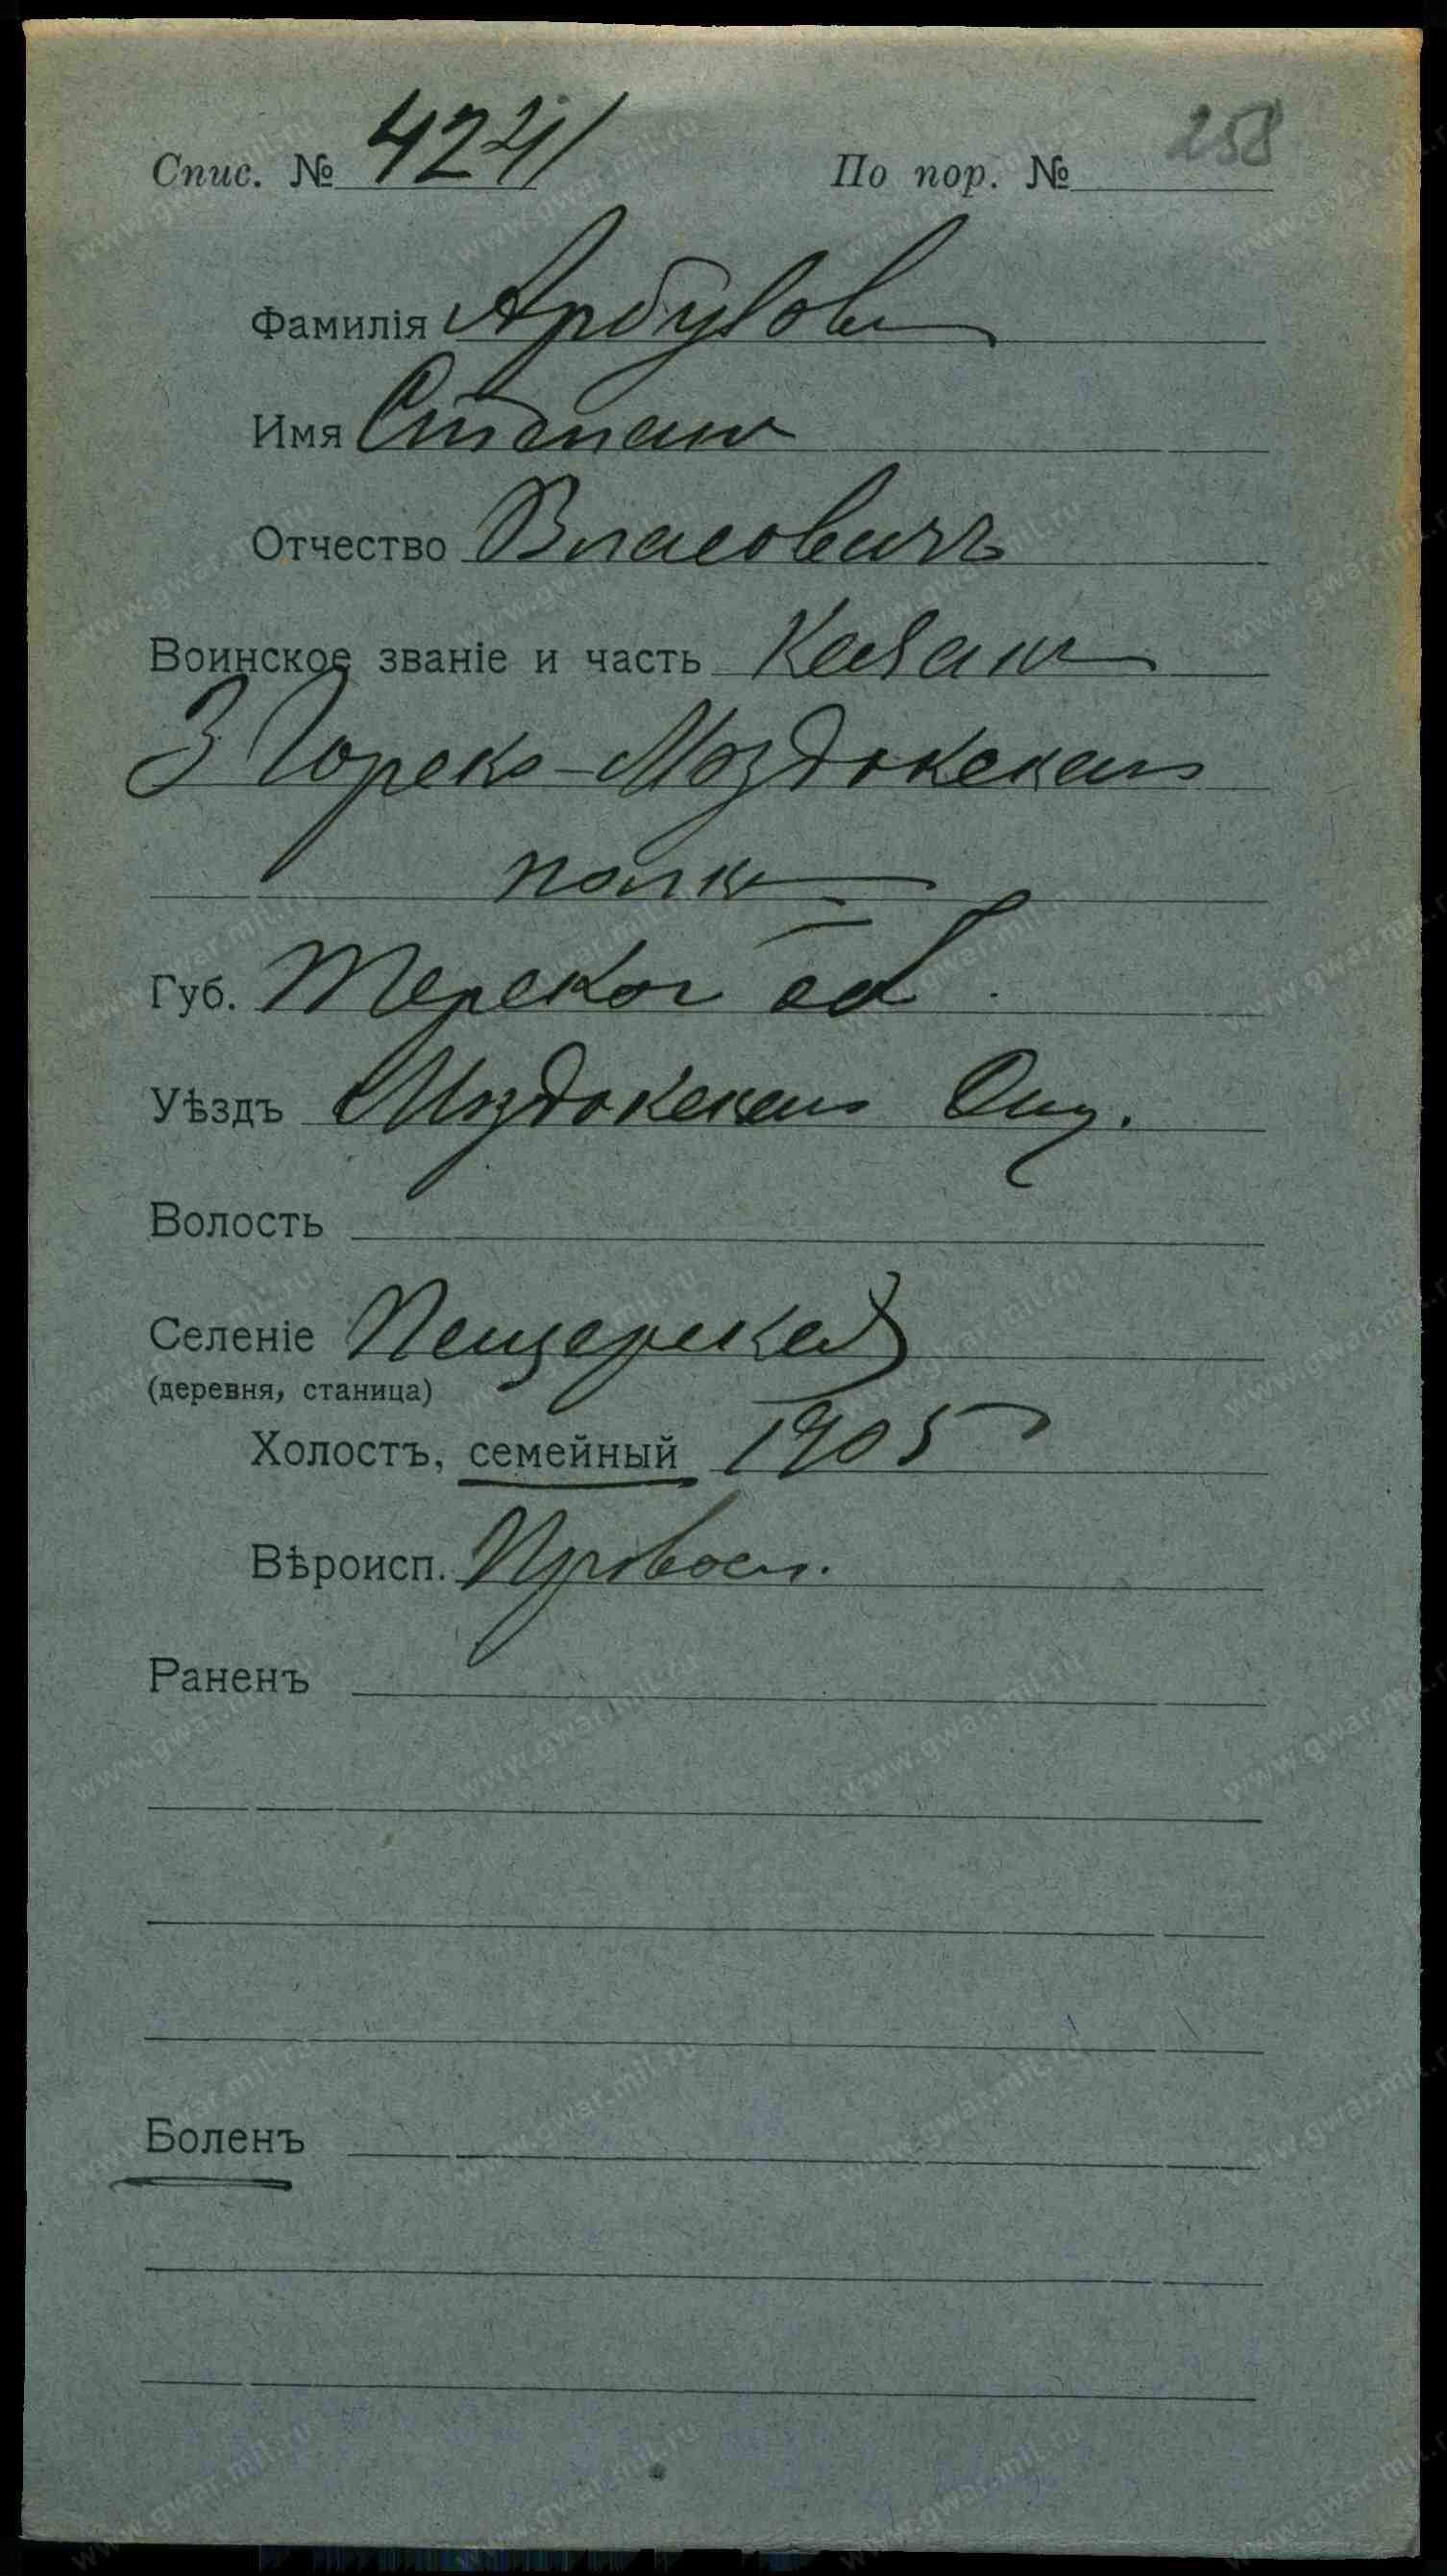 Спис. № 4241 По пор. № 258
Фамилія Арбузовъ
Имя Степанъ
Отчество Власовичъ
Воинское званіе и часть Казакъ
3 Горско-Моздокскаго
полка
Губ. Терской об.
Уѣздъ Моздокскаго Отд.
Волость
Селеніе
(деревня, станица)
Холостъ, семейный 1905
Вѣроисп. Правосл.
Раненъ
Боленъ